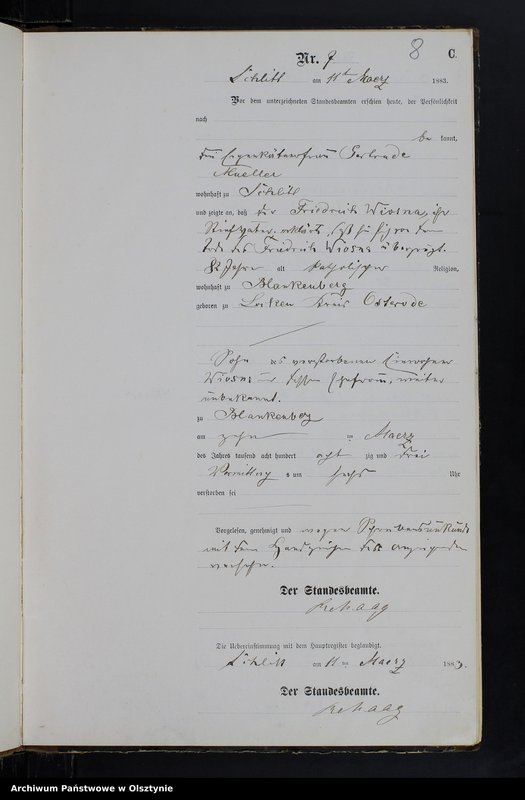 8 C.
Nr. 7
Schlitt am 11ten Maerz 1883.
Vor dem unterzeichneten Standesbeamten erschien heute, der Persönlichkeit
nach
be kannt,
die Eigenkäthnerfrau Gertrude
Mueller
wohnhaft zu Schlitt
und zeigte an, daß der Friedrich Wiosna, ihr
Stiefvater. erklärt, daß sie sich von dem
Tode des Friedrich Wiosna überzeugt.
82 Jahre alt katholischer Religion,
wohnhaft zu Blankenberg
geboren zu Locken Kreis Osterode
Sohn des verstorbenen Einwohner
Wiosna und dessen Ehefrau, weiter
unbekannt.
zu Blankenberg
am zehn ten Maerz
des Jahres tausend acht hundert acht zig und drei
Vormittags um sechs Uhr
verstorben sei
Vorgelesen, genehmigt und wegen Schreibensunkunde
mit dem Handzeichen der anzeigenden
versehen.
Der Standesbeamte.
Rehaag
Die Uebereinstimmung mit dem Hauptregister beglaubigt.
Schlitt am 11 ten Maerz 1883.
Der Standesbeamte.
Rehaag
Archiwum Państwowe w Olsztynie